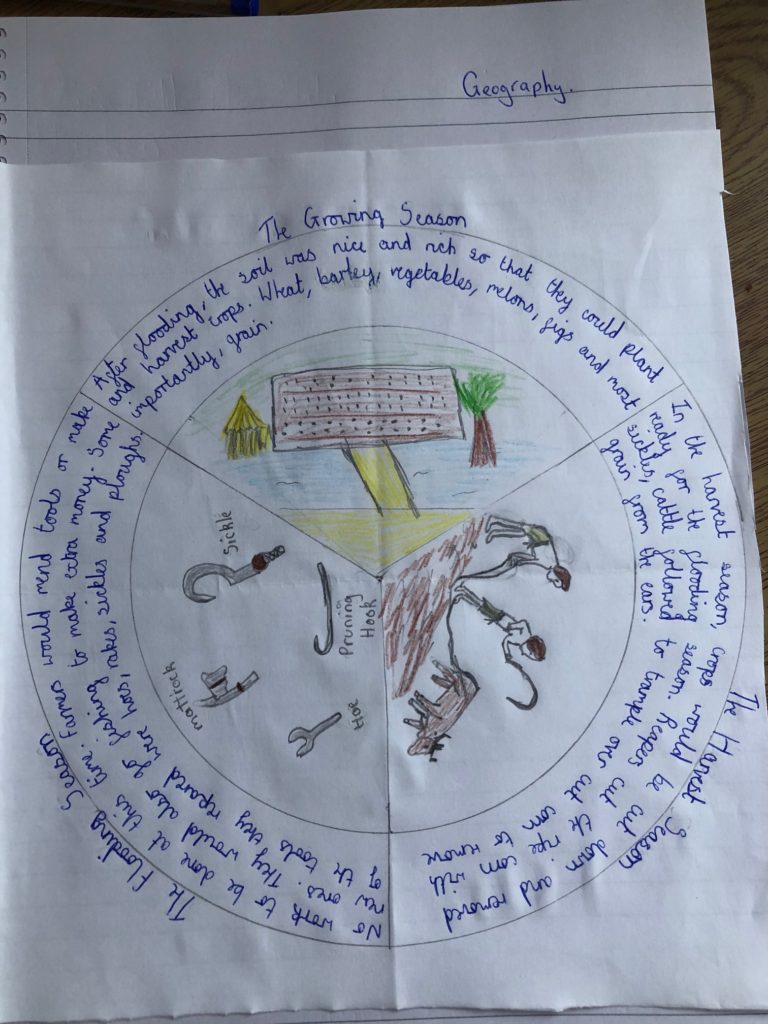 Geography.
The Growing Season
After flooding, the soil was nice and rich so that they could plant
and harvest crops. Wheat, barley, vegetables, melons, figs and most
importantly, grain.
The Harvest Season
In the harvest season, crops would be cut down and removed
ready for the flooding season. Reapers cut the ripe corn with
sickles, cattle followed to trample over cut corn to remove
grain from the ears.
The Flooding Season
No work to be done at this time. Farmers would mend tools or make
new ones. They would also go fishing to make extra money. Some
of the tools they repaired were hoes, rakes, sickles and ploughs.
Sickle
Pruning
Hook
mattock
Hoe